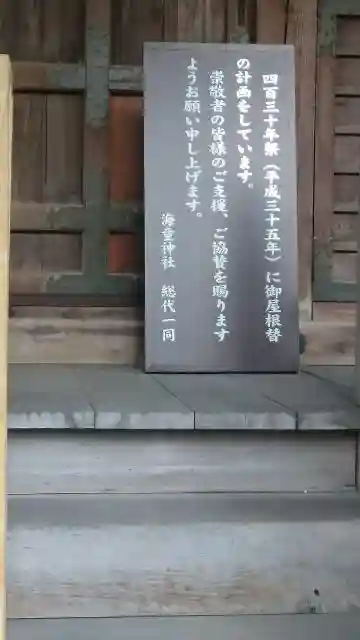 四百三十年祭(平成三十五年)に御屋根替
の計画をしています。
崇敬者の皆様のご支援、ご協賛を賜ります
ようお願い申し上げます。
海童神社 総代一同